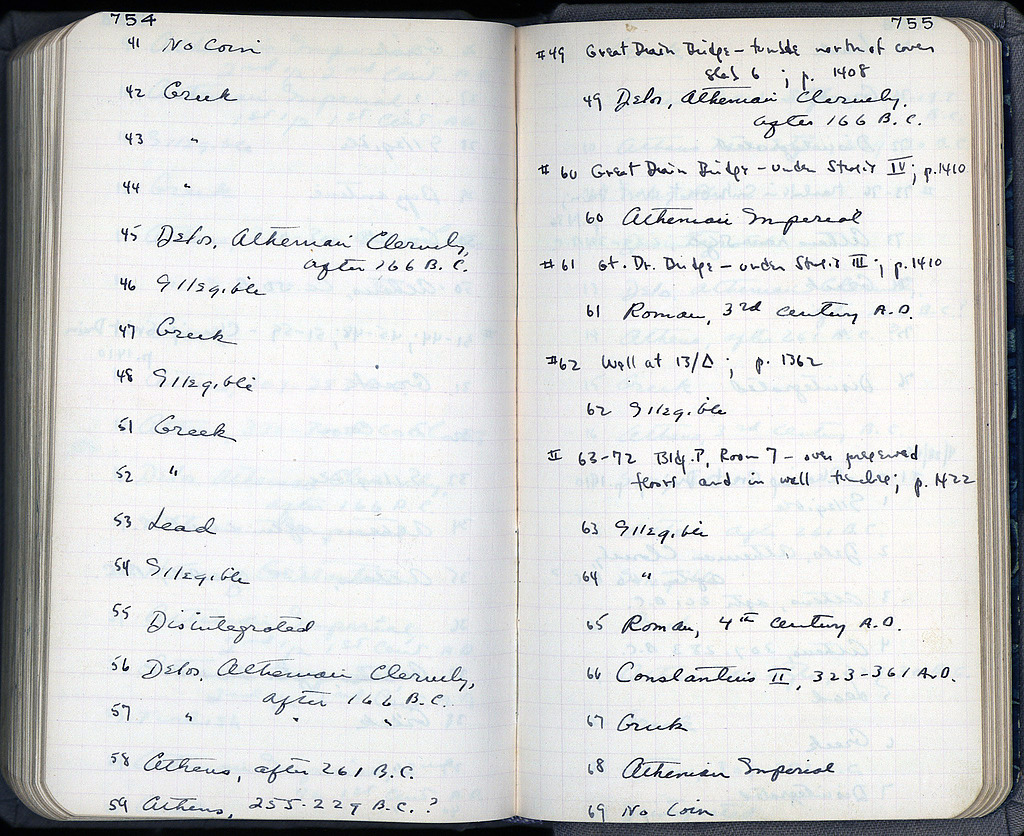 754
41 No Coin
42 Greek
43 "
44 "
45 Delos, Athenian Cleruchy,
after 166 B.C.
46 Illegible
47 Greek
48 Illegible
51 Greek
52 "
53 Lead
54 Illegible
55 Disintegrated
56 Delos, Athenian Cleruchy,
after 166 B.C.
57 " " "
58 Athens, after 261 B.C.
59 Athens, 255-229 B.C.?
755
#49 Great Drain Bridge - tumble north of cover
slab 6 ; p. 1408
49 Delos, Athenian Cleruchy,
after 166 B.C.
#60 Great Drain Bridge - under Stosis IV; p.1410
60 Athenian Imperial
#61 Gt. Dr. Bridge - under Stosis III; p.1410
61 Roman, 3rd century A.D.
#62 Wall at 13/Δ ; p. 1362
62 Illegible
II 63-72 Bldg. P, Room 7 - over preserved
floors and in wall tumble; p. 1422
63 Illegible
64 "
65 Roman, 4th century A.D.
66 Constantius II, 323-361 A.D.
67 Greek
68 Athenian Imperial
69 No Coin